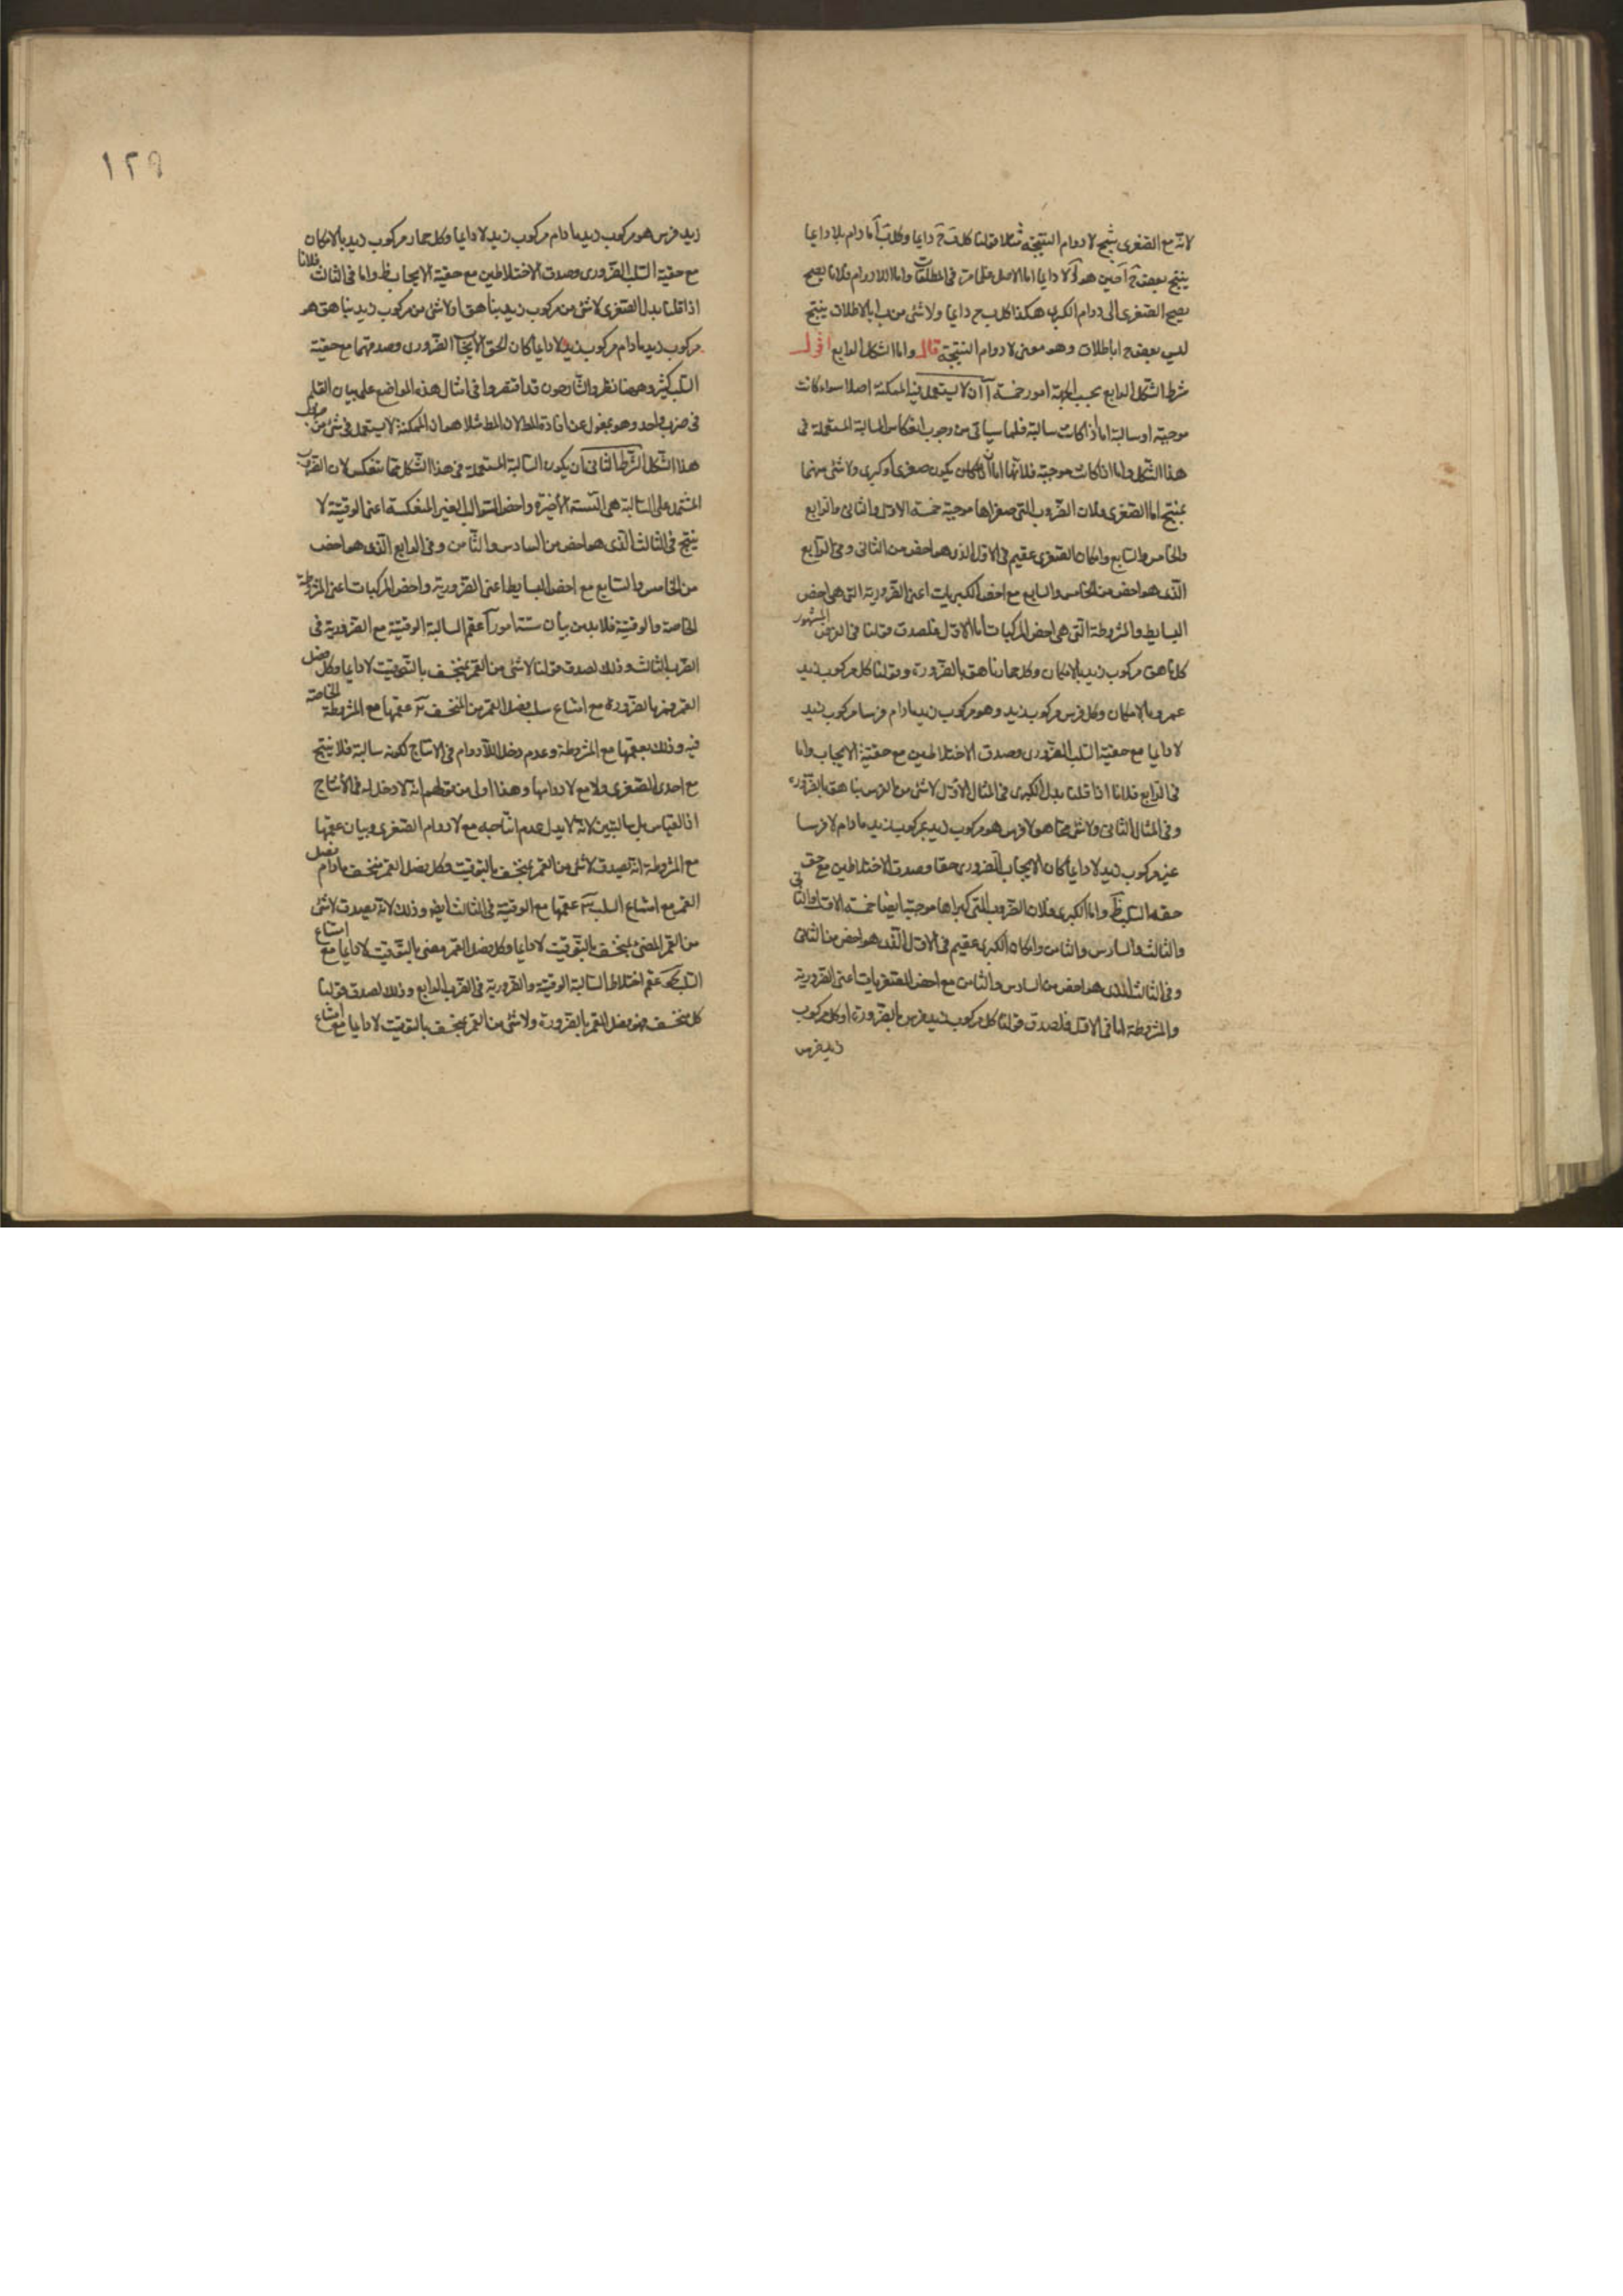 لانه مع الصغرى ينتج لا دوام النتيجة مثلا قولنا كل ج دايما وكل ب ا مادام ب لا دايما
ينتج بعض ج ا حين هو لا دايما اما الاصل فلما مر فى المطلقات واما اللادوام فلانا نضم
الصغرى الى دوام الكبرى هكذا كل ب ج دايما ولا شئ من ب ا بالاطلاق ينتج
ليس بعض ج ا باطلاق وهو معنى لا دوام النتيجة قال واما الشكل الرابع اقول
شرط الشكل الرابع بحسب الجهة امور خمسة آ ان لا يستعمل فيه الممكنة اصلا سواء كانت
موجبة او سالبة اما اذا كانت سالبة فلما سياتى من وجوب انعكاس السالبة المستعملة فى
هذا الشكل واما اذا كانت موجبة فلانها اما ان يكون صغرى او كبرى ولا شئ منهما
بمنتج اما الصغرى فلان الضروب التى صغراها موجبة خمسة الاول والثانى والرابع
والخامس والسابع وامكان الصغرى عقيم فى الاول الذى هو اخص من الثانى وفى الرابع
الذى هو اخص من الخامس والسابع مع اخص الكبريات اعنى الضرورية التى هى اخص
البسايط والمشروطة التى هى اخص المركبات اما الاول فلصدق قولنا فى الفرض المشهور
كل ناهق مركوب زيد بالامكان وكل حمار ناهق بالضرورة وقولنا كل مركوب زيد
عمرو بالامكان وكل فرس مركوب زيد وهو مركوب زيد مادام فرسا مركوب زيد
لا دايما مع حقية السلب الضرورى وصدق الاختلاطين مع حقية الايجاب واما
فى الرابع فلانا اذا قلنا بدل الكبرى فى المثال الاول لا شئ من الفرس بناهق بالضرورة
وفى المثال الثانى ولا شئ مما هو لا فرس هو مركوب زيد بمركوب زيد مادام لا فرسا
غير مركوب زيد لا دايما كان الايجاب الضرورى حقا وصدق الاختلاطين مع
حقية السلب ظ واما الكبرى فلان الضروب التى كبراها موجبة ايضا خمسة الاول والثانى
والثالث والسادس والثامن وامكان الكبرى عقيم فى الاول الذى هو اخص من الثانى
وفى الثالث الذى هو اخص من السادس والثامن مع اخص الصغريات اعنى الضرورية
والمشروطة اما فى الاول فلصدق قولنا كل مركوب زيد فرس بالضرورة او كل مركوب
زيد فرس
١٢٩
زيد فرس هو مركوب زيد مادام مركوب زيد لا دايما وكل حمار مركوب زيد بالامكان
مع حقية السلب الضرورى وصدق الاختلاطين مع حقية الايجاب ظ واما فى الثالث فلانا
اذا قلنا بدل الصغرى لا شئ من مركوب زيد بناهق او لا شئ من مركوب زيد بناهق هو
مركوب زيد مادام مركوب زيد لا دايما كان الحق الايجاب الضرورى وصدقهما مع حقية
السلب كثير وههنا نظر والشارحون قد اقتصروا فى امثال هذه المواضع على بيان العقم
فى ضرب واحد وهو بمعزل عن افادة المط لان المط مثلا هو ان الممكنة لا يستعمل فى شئ من
هذا الشكل الشرط الثانى ان يكون السالبة المستعملة فى هذا الشكل مما تنعكس لان الضرب
المشتمل على السالبة هى الستة الاخيرة واخص السوالب الغير المنعكسة اعنى الوقتية لا
ينتج فى الثالث الذى هو اخص من السادس والثامن وفى الرابع الذى هو اخص
من الخامس والسابع مع اخص البسايط اعنى الضرورية واخص المركبات اعنى المشروطة
الخاصة والوقتية فلا بد من بيان ستة امور آ عقم السالبة الوقتية مع الضرورية فى
الضرب الثالث وذلك لصدق قولنا لا شئ من القمر بمنخسف بالتوقيت لا دايما وكل
القمر قمر بالضرورة مع امتناع سلب فصل القمر من المنخسف ب عقمها مع المشروطة الخاصة
فيه وذلك بعقمها مع المشروطة وعدم دخل اللادوام فى الانتاج لكونه سالبة فلا ينتج
مع احدى الصغرى ولا مع لادوامها وهذا اولى من قولهم انه لا دخل له فى الانتاج
اذ القياس بل بالتبين لانه لا يدل عدم انتاجه مع لا دوام الصغرى وبيان عقمها
مع المشروطة انه يصدق لا شئ من القمر بمنخسف بالتوقيت وكل فصل القمر منخسف مادام فصل
القمر مع امتناع السلب ج عقمها مع الوقتية فى الثالث ايضا وذلك لانه يصدق لا شئ
من القمر المضئ بمنخسف بالتوقيت لا دايما وكل فصل القمر مضئ بالتوقيت لا دايما مع امتناع
السلب د عقم اختلاط السالبة الوقتية والضرورية فى الضرب الرابع وذلك لصدق قولنا
كل منخسف فهو فصل القمر بالضرورة ولا شئ من القمر بمنخسف بالتوقيت لا دايما مع امتناع